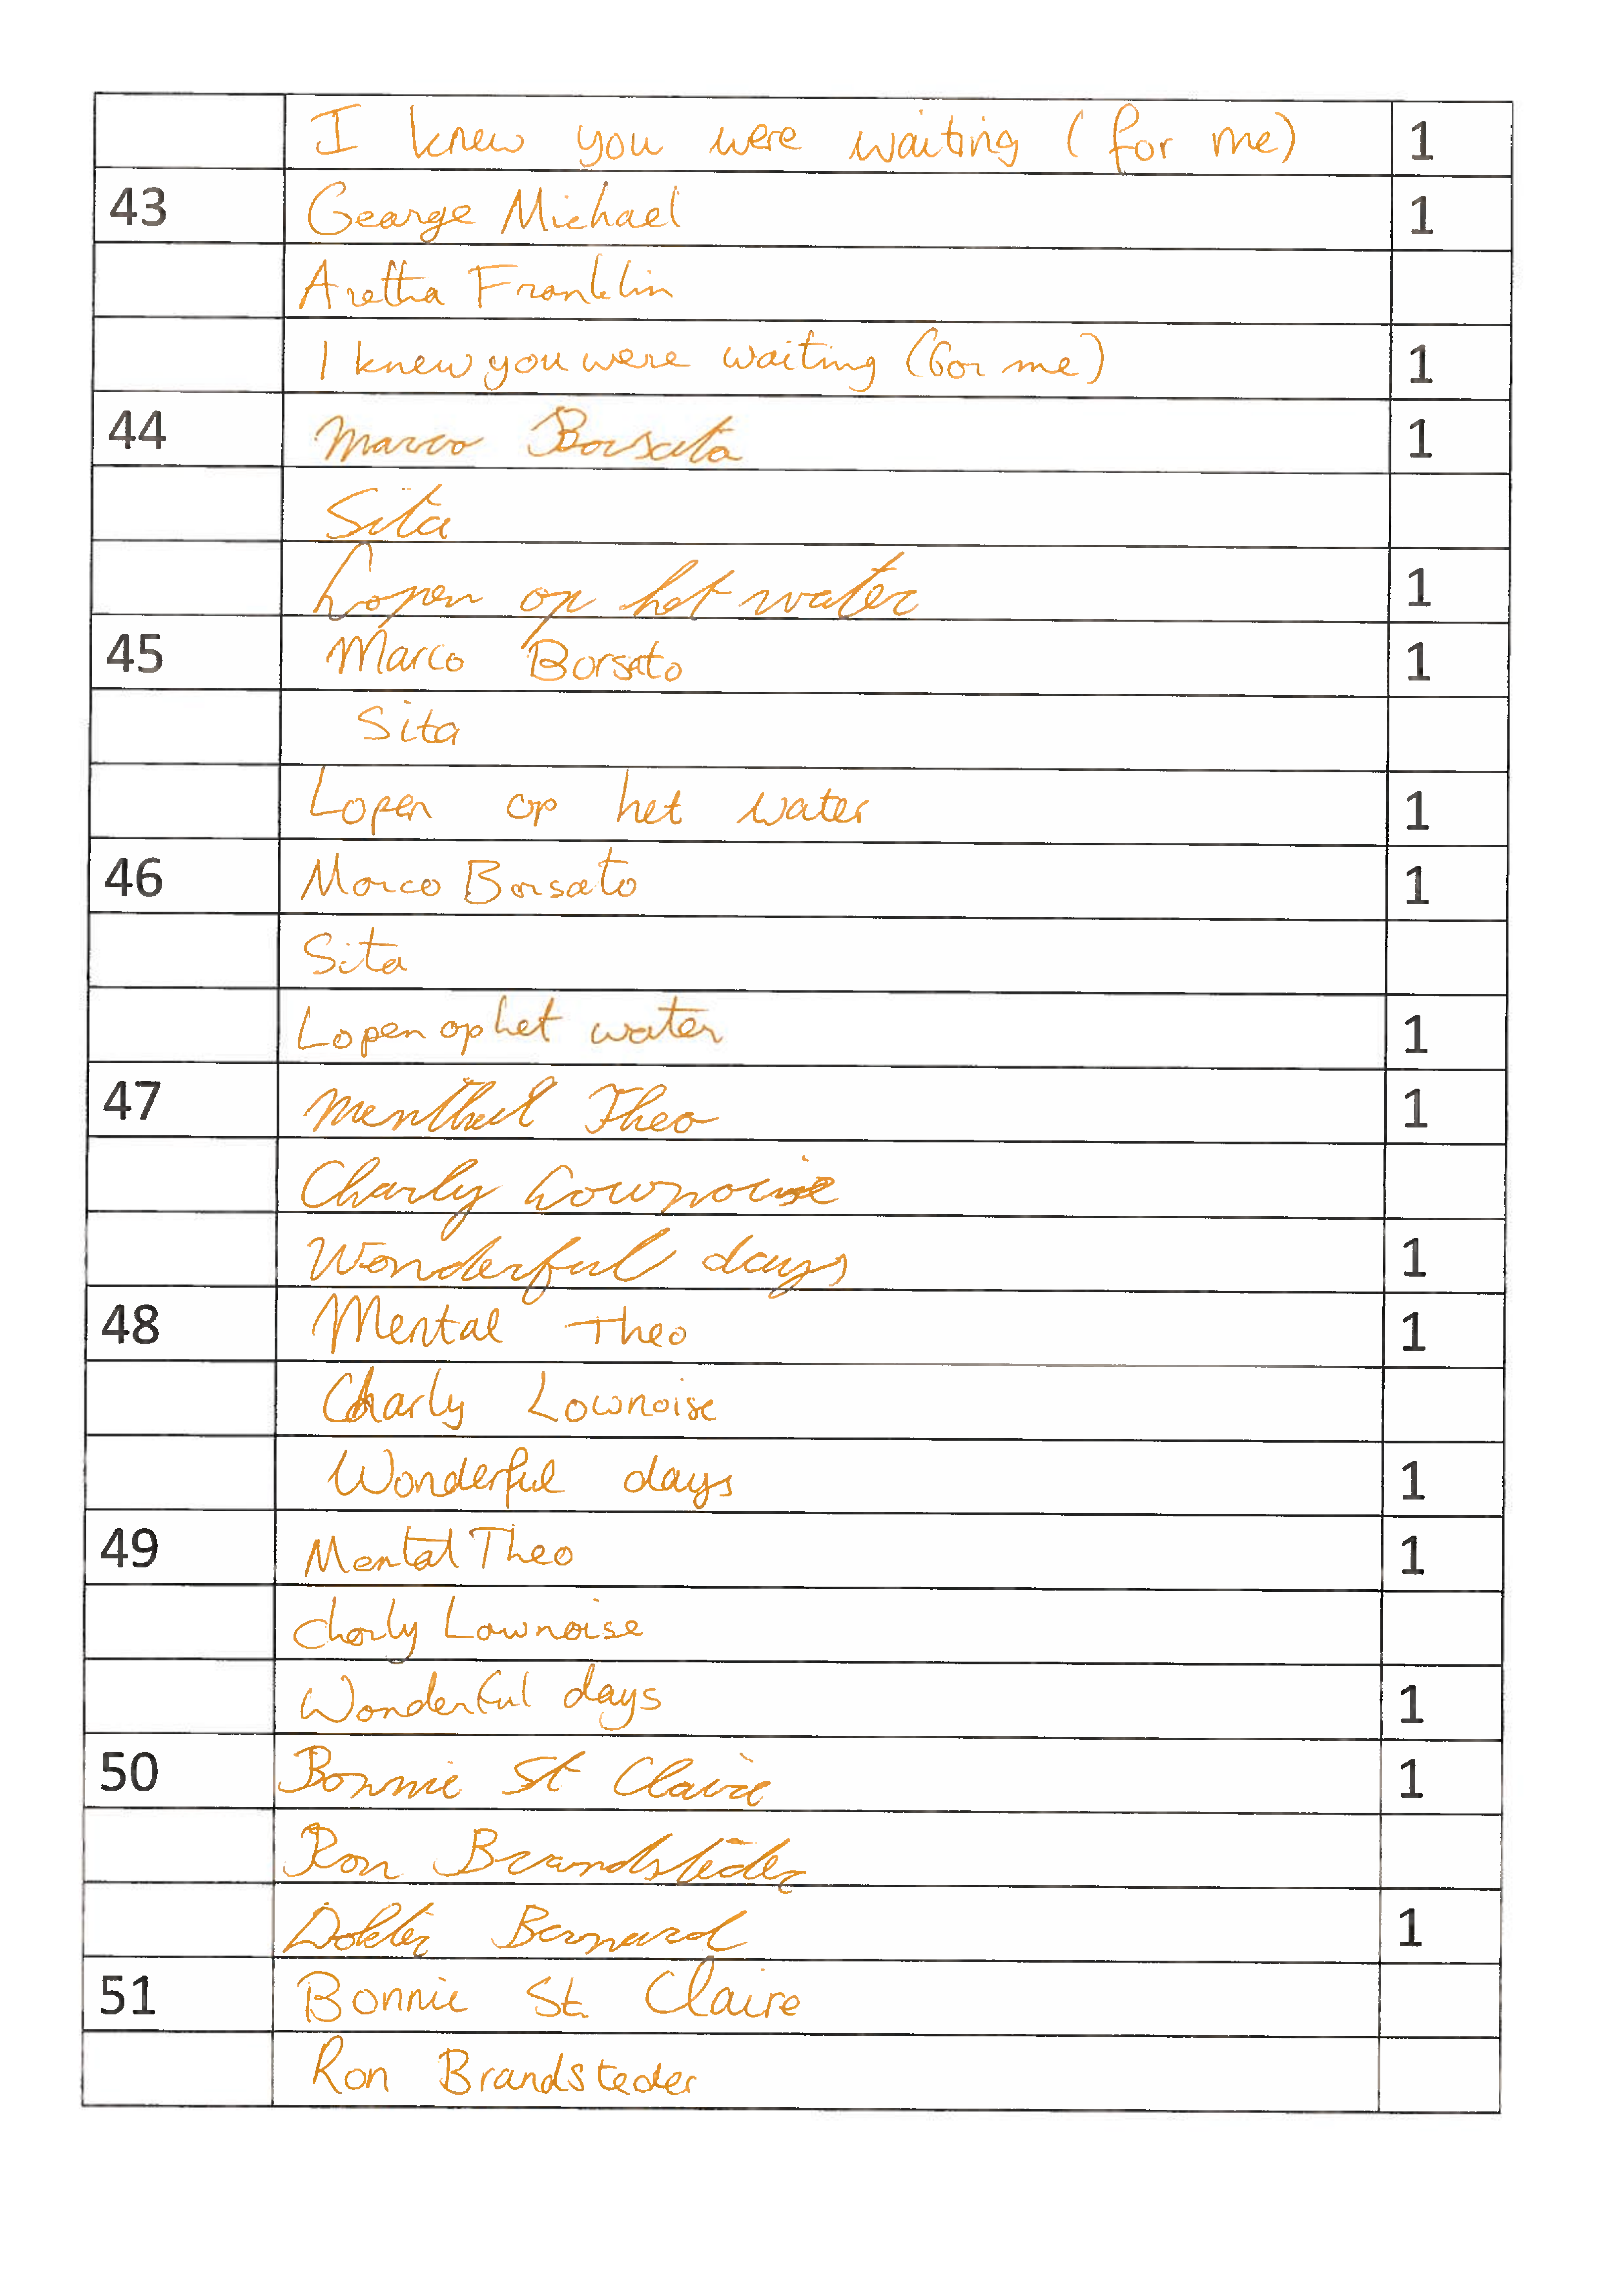 I knew you were waiting (for me) 1
43 George Michael 1
Aretha Franklin
I knew you were waiting (for me) 1
44 Marco Borsato 1
Sita
Lopen op het water 1
45 Marco Borsato 1
Sita
Lopen op het water 1
46 Marco Borsato 1
Sita
Lopen op het water 1
47 Menthal Theo 1
Charly Lownoise
Wonderful days 1
48 Mental Theo 1
Charly Lownoise
Wonderful days 1
49 Mental Theo 1
Charly Lownoise
Wonderful days 1
50 Bonnie St Claire 1
Ron Brandsteder
Dokter Bernard 1
51 Bonnie St. Claire
Ron Brandsteder